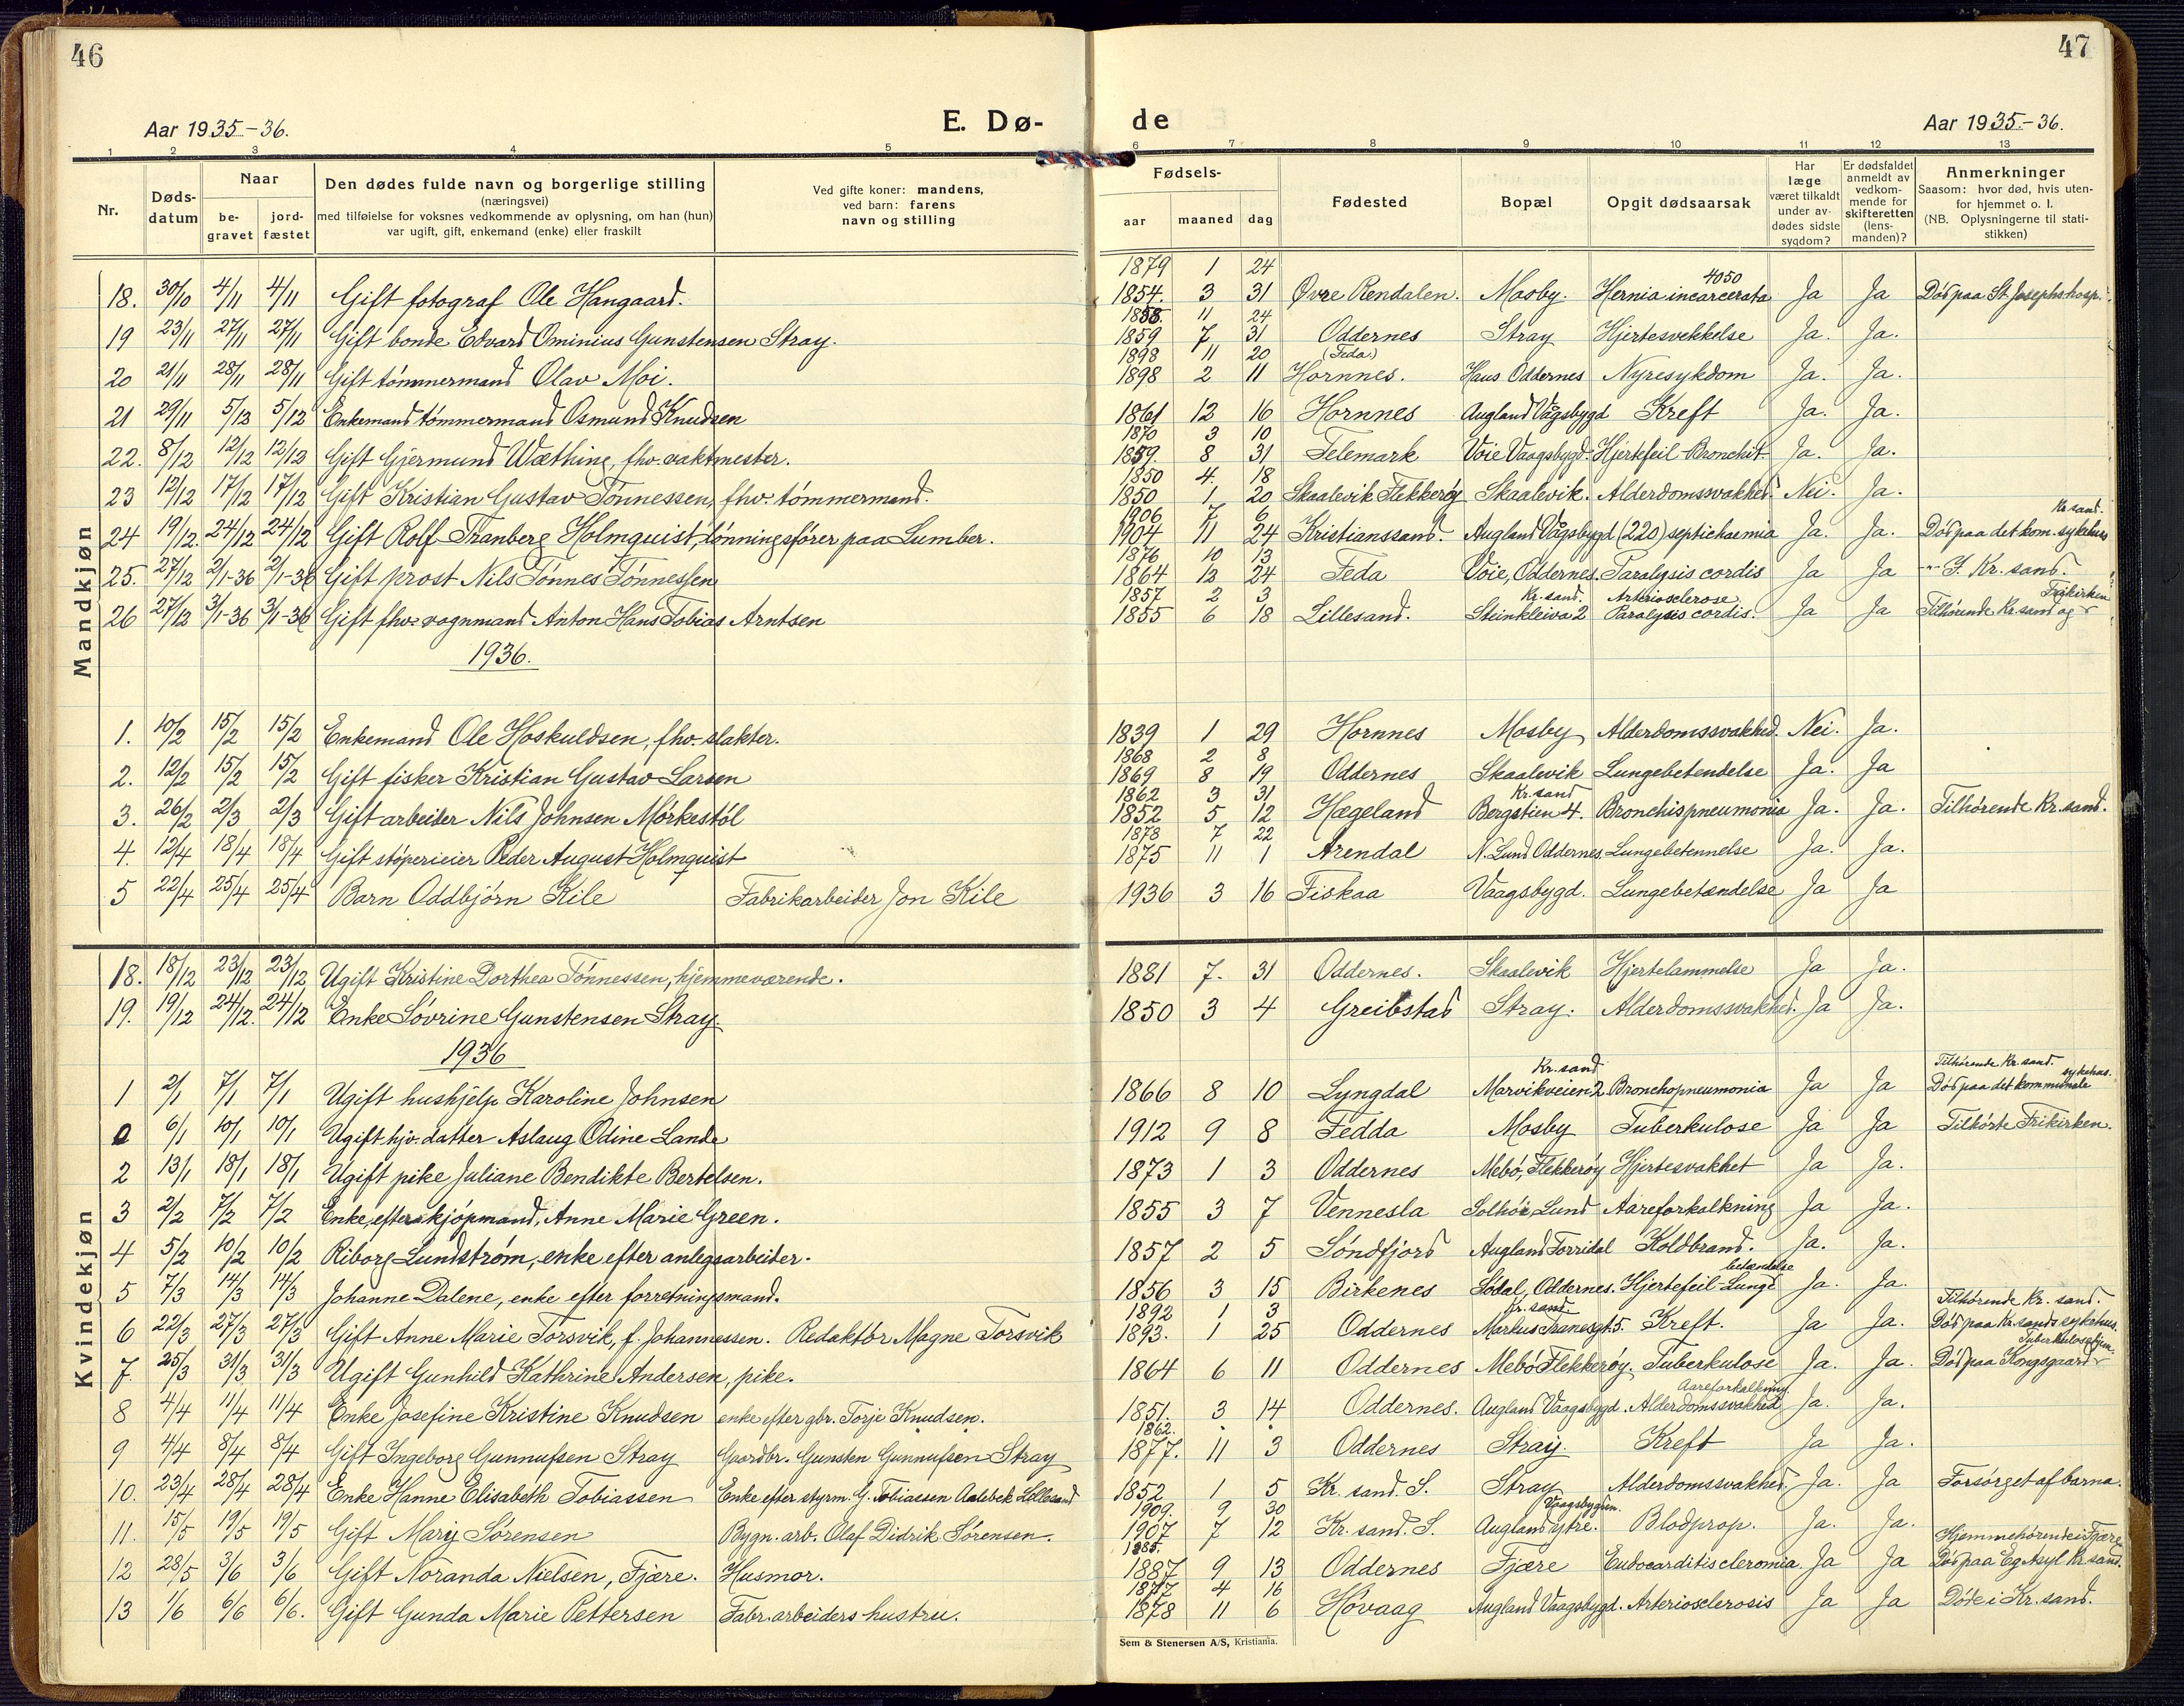 46
47
Aar 1935-36.
E. Dø-
de
Aar 1935-36.
1 2 3 4 5 6 7 8 9 10 11 12 13
Nr.
Døds-
datum
Naar
be-
gravet
jord-
fæstet
Den dødes fulde navn og borgerlige stilling
(næringsvei)
med tilføielse for voksnes vedkommende av oplysning, om han (hun)
var ugift, gift, enkemand (enke) eller fraskilt
Ved gifte koner: mandens,
ved barn: farens
navn og stilling
Fødsels-
aar
maaned
dag
Fødested
Bopæl
Opgit dødsaarsak
Har
læge
været tilkaldt
under av-
dødes sidste
sygdom?
Er dødsfaldet
anmeldt av
vedkom-
mende for
skifteretten
(lens-
manden)?
Anmerkninger
Saasom: hvor død, hvis uten-
for hjemmet o. l.
(NB. Oplysningerne til stati-
stikken)
Mandkjøn
1879 1 24
4050
18. 30/10 4/11 4/11 Gift fotograf Ole Hangaard. 1854. 3 31 Øvre Rendalen. Mosby. Hernia incarcerata Ja Ja Død paa St. Josephs hosp.
1858. 11 24
19 23/11 27/11 27/11 Gift bonde Edvard Ominius Gunstensen Stray. 1859 7 31 Oddernes Stray Hjertesvekkelse Ja. Ja.
1898 11 20 (Feda.)
20 21/11 28/11 28/11 Gift tømmermand Olav Moi. 1898 2 11 Hornnes. Haus Oddernes Nyresykdom Ja. Ja.
21 29/11 5/12 5/12 Enkemand tømmermand Osmund Knudsen 1861 12 16 Hornnes Augland Vågsbygd Kreft Ja. Ja.
1870 3 10
22. 8/12 12/12 12/12 Gift Gjermund Wæthing, fhv. vaktmester. 1859. 8 31 Telemark Voie Vaagsbygd. Hjertefeil-Bronchit Ja. Ja.
1850 4. 18
23 12/12 17/12 17/12 Gift Kristian Gustav Tønnessen, fhv. tømmermand. 1850 1 20 Skaalevik Flekkerøy Skaalevik. Alderdomssvakhed. Nei. Ja.
1906 7 6 Kr. sand.
24 19/12. 24/12 24/12 Gift Rolf Tranberg Holmquist, lønningsfører paa Lumber. 1904 11 24 Kristianssand. Augland Vågsbygd (220) septichaemia Ja. Ja. Død paa det kom. sykehus
1876 10 13
25. 27/12 2/1-36 2/1-36 Gift prost Nils Tønnes Tønnessen 1864 12 24 Feda Voie, Oddernes. Paralysis cordis Ja Ja -"- I. Kr. sand.
1857 2 3 Kr. sand. Arteriosclerose. Frikirken
26 27/12 3/1-36 3/1-36 Gift fhv. vognmand Anton Hans Tobias Arntsen 1855 6 18 Lillesand. Steinkleiva 2 Paralysis cordis. Ja Ja Tilhørende Kr. sand og
1936.
1. 10/2 15/2 15/2 Enkemand Ole Hoskuldsen, fhv. slakter. 1839 1 29 Hornnes Mosby Alderdomssvakhed. Nei. Ja.
1868 2 8
2. 12/2 15/2 15/2 Gift fisker Kristian Gustav Larsen 1869 8 19 Oddernes Skaalevik Lungebetendelse Ja. Ja
1862 3 31 Kr. sand
3. 26/2 2/3 2/3 Gift arbeider Nils Johnsen Mørkestøl 1852 5 12 Hægeland Bergstien 4. Bronchispneumonia Ja. Ja. Tilhørende Kr. sand.
1878 7 22
4. 12/4 18/4 18/4 Gift støperieier Peder August Holmquist 1875 11 1 Arendal N. Lund Oddernes. Lungebetennelse Ja. Ja.
5 22/4 25/4 25/4 Barn Oddbjørn Kile Fabrikarbeider Jon Kile 1936 3 16 Fiskaa Vaagsbygd. Lungebetændelse Ja Ja
Kvindekjøn
18. 18/12 23/12 23/12 Ugift Kristine Dorthea Tønnessen, hjemmeværende. 1881 7. 31 Oddernes. Skaalevik Hjertelammelse Ja Ja.
19. 19/12 24/12. 24/12 Enke Søvrine Gunstensen Stray. 1850 3 4 Greibstad Stray. Alderdomssvakhed. Ja Ja.
1936
Kr. sand Tilhørende Kr. sand. sykehus.
1 2/1 7/1 7/1 Ugift hushjelp Karoline Johnsen 1866 8 10 Lyngdal Marvikveien 2 Bronchopneumonia Ja Ja Død paa det kommunale
0 6/1 10/1 10/1 Ugift hjv. datter Aslaug Odine Lande 1912 9 8 Fedda Mosby Tuberkulose Ja Ja Tilhørte Frikirken.
2 13/1 18/1 18/1 Ugift pike Juliane Bendikte Bertelsen. 1873 1 3 Oddernes Mebø, Flekkerøy Hjertesvakhet Ja Ja.
3 2/2 7/2 7/2 Enke, efter skjøpmand, Anne Marie Green. 1855 3 7 Vennesla Solhøi, Lund Aareforkalkning Ja Ja.
4 5/2 10/2 10/2 Riborg Lundstrøm, enke efter anlegsarbeider. 1857 2 5 Søndfjord Augland Torridal Koldbrand. Ja. Ja.
betændelse
5 7/3 14/3 14/3 Johanne Dalene, enke efter forretningsmand. 1856 3 15 Birkenes Sødal, Oddernes. Hjertefeil-Lunge Ja. Ja.
1892 1 3 Kr. sand Tilhørende Kr. sand.
6 22/3 27/3 27/3 Gift Anne Marie Torsvik, f. Johannessen. Redaktør Magne Torsvik 1893. 1 25 Oddernes Markus Tranesgt. 5. Kreft. Ja Ja. Død paa Kr. sands sykehus.
Tuberkulosehjem.
7. 25/3 31/3 31/3 Ugift Gunhild Kathrine Andersen, pike. 1864 6 11 Oddernes Mebø Flekkerøy. Tuberkulose Ja. Ja. Død paa Kongsgaard
Aareforkalkning
8 4/4 11/4 11/4 Enke Josefine Kristine Knudsen enke efter gbr. Torje Knudsen. 1851. 3 14 Oddernes. Augland Vaagsbygd. Alderdomssvakhed Ja. Ja.
1862.
9 4/4 8/4 8/4 Gift Ingeborg Gunnufsen Stray Gaardbr. Gunsten Gunnufsen Stray 1877. 11 3 Oddernes Stray. Kreft Ja Ja.
10. 23/4 28/4 28/4 Enke Hanne Elisabeth Tobiassen Enke efter styrm. G. Tobiassen Aalebek Lillesand 1852 1 5 Kr. sand. S. Stray Alderdomssvakhed. Ja. Ja Forsørget af barna.
1909. 9 30 Vaagsbygden.
11. 15/5 19/5 19/5 Gift Mary Sørensen Bygn. arb. Olaf Didrik Sørensen. 1907 7 12 Kr. sand. S. Augland ytre. Blodprop. Ja. Ja.
1885. Hjemmehørende i Fjære
12 28/5 3/6 3/6 Gift Noranda Nielsen, Fjære. Husmor. 1887 9 13 Oddernes Fjære Endocarditis cleromia Ja Ja Død paa Eg Asyl Kr. sand.
1877 4 16
13 1/6 6/6 6/6. Gift Gunda Marie Pettersen Fabr. arbeiders hustru. 1878 11 6 Høvaag Augland Vaagsbygd. Arteriosclerosis Ja Ja Døde i Kr. sand.
Sem & Stenersen A/S, Kristiania.